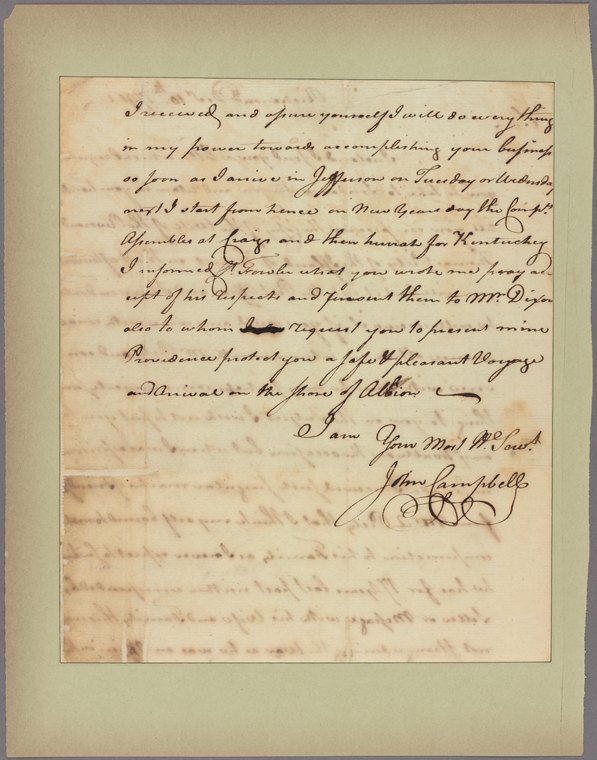 I received and assure yourself I will do every thing
in my power towards accomplishing your business
so soon as I arrive in Jefferson on Tuesday or Wednesday
next I start from hence on New Years day the Comp.y
Assembles at Craigs and then hurrah for Kentuckey
I informed P. Fowler what you wrote me pray ac-
cept of his respects and present them to Mr. Dixon
also to whom I request you to present mine
Providence protect you a safe & pleasant Voyage
and arrival on the Shore of Albion
I am Your Most H.e Serv.t
John Campbell